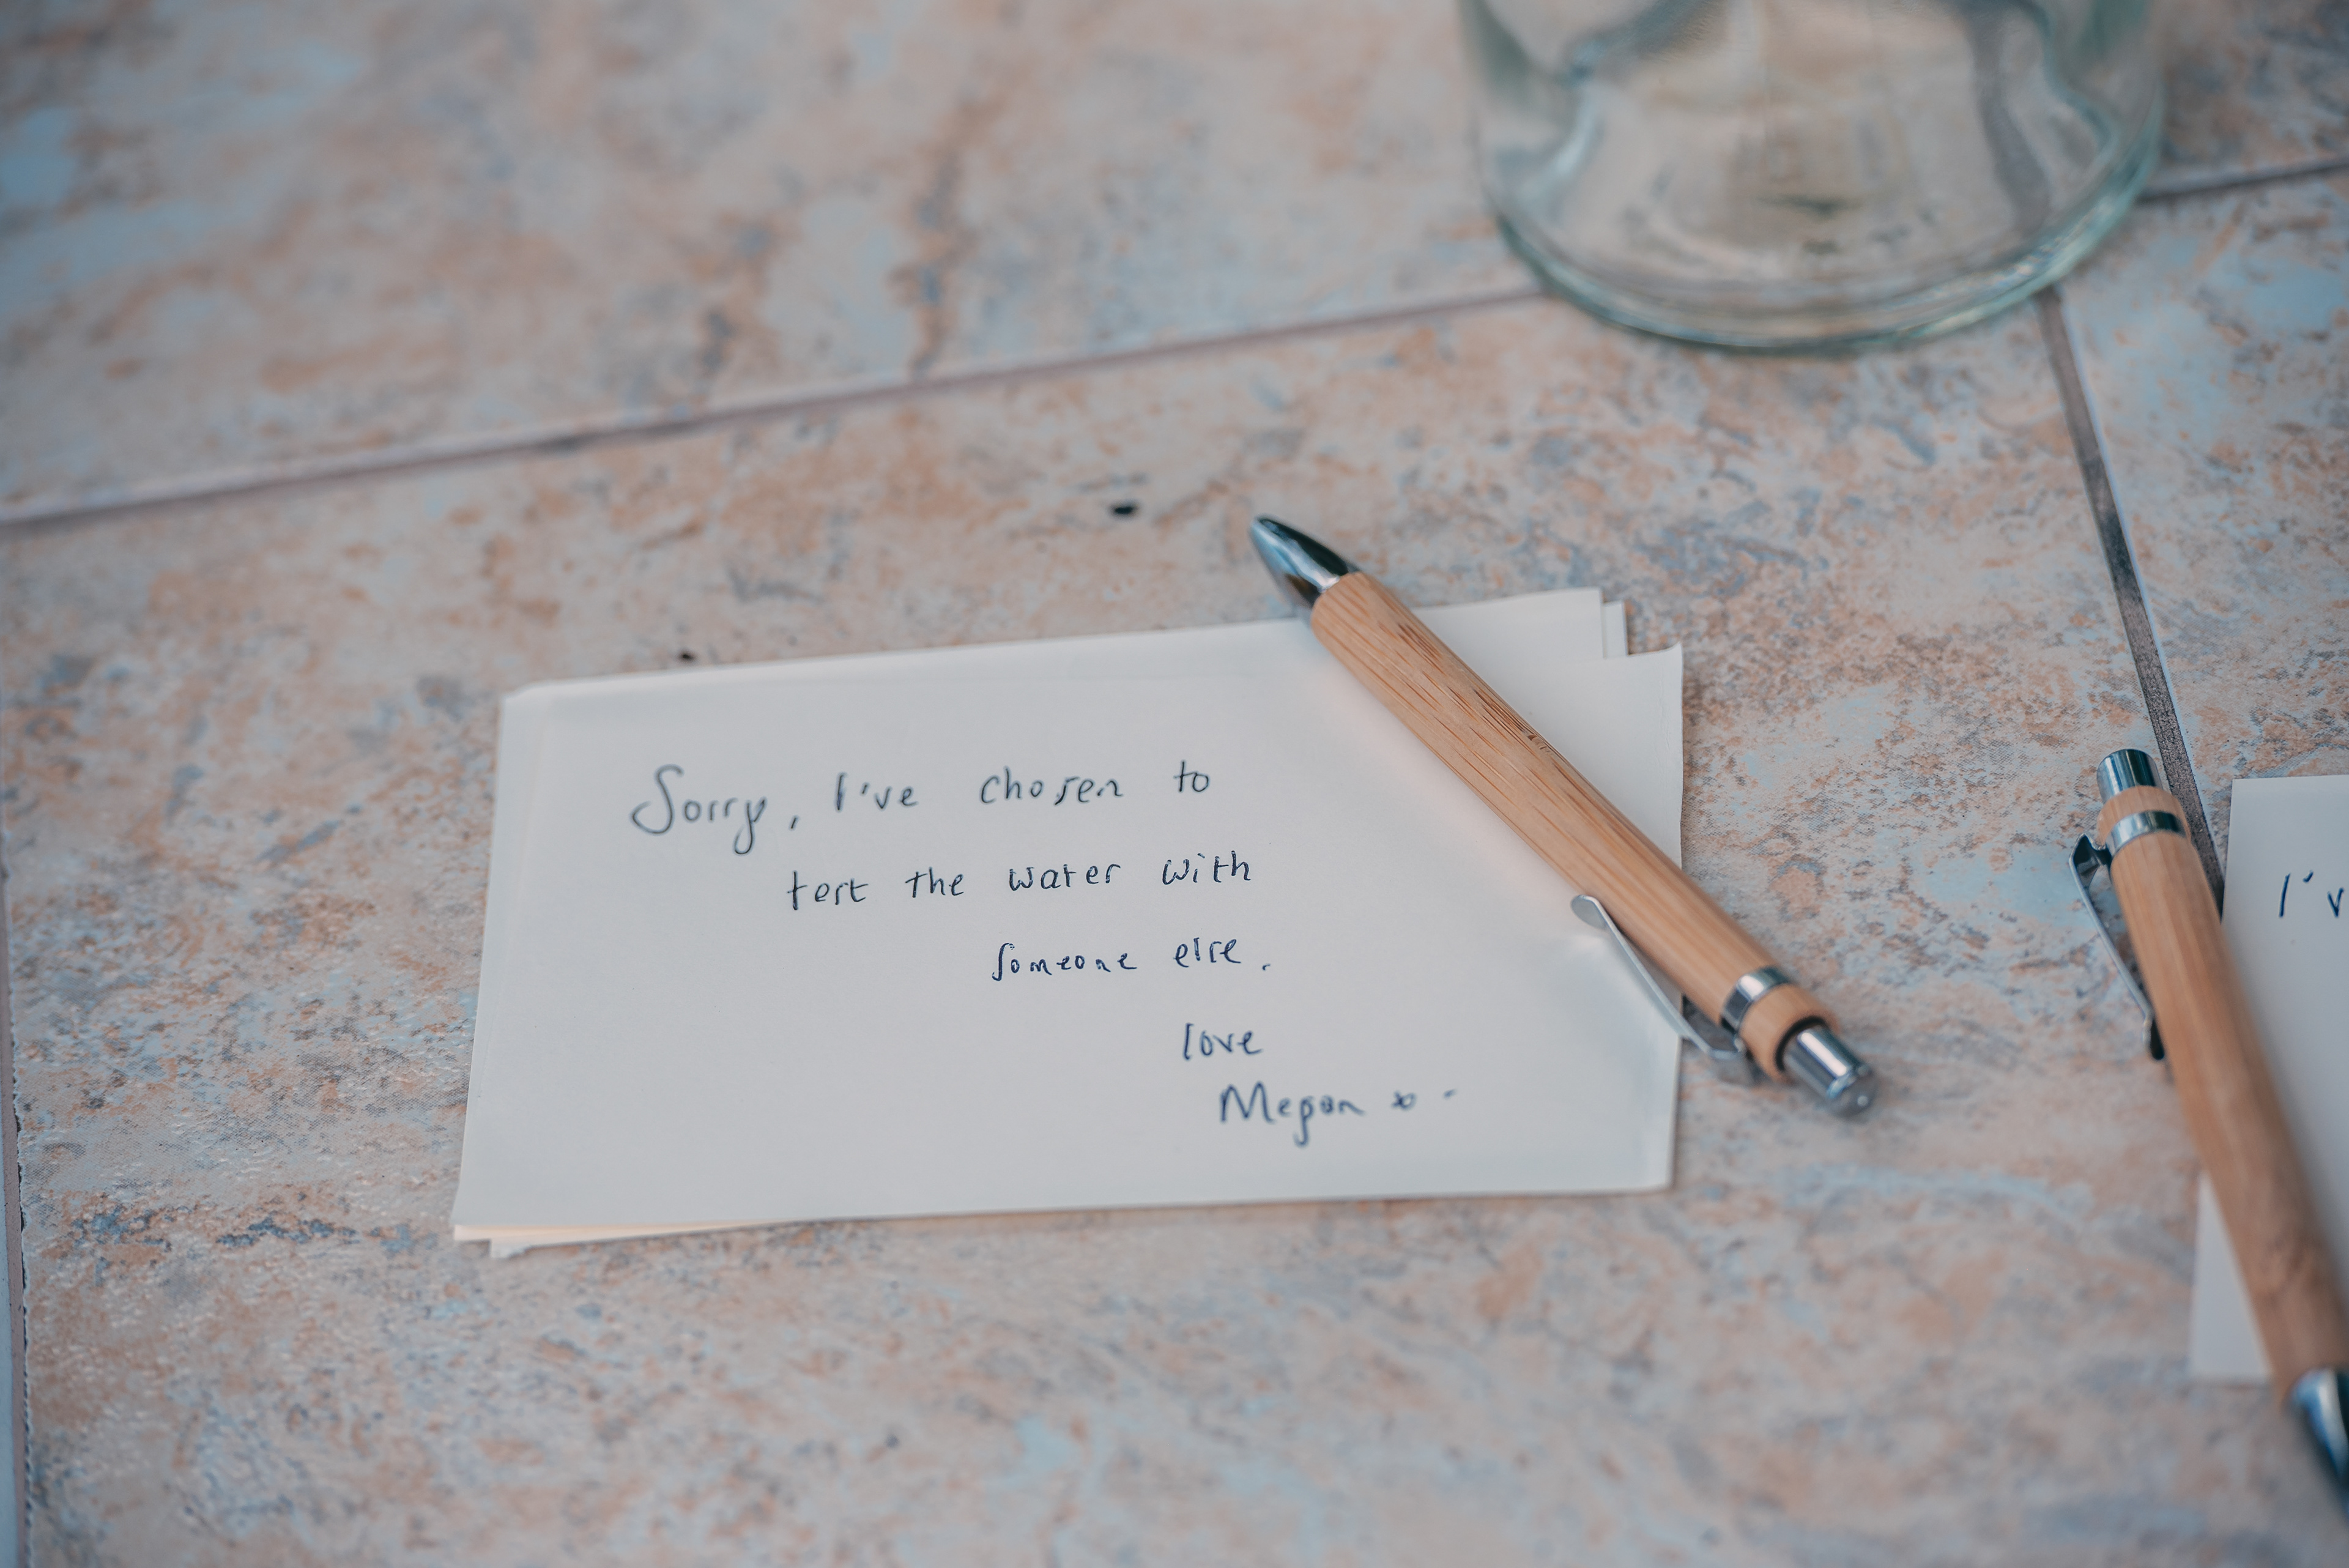 Sorry, I've chosen to
test the water with
someone else.
love
Megan x -
I'v